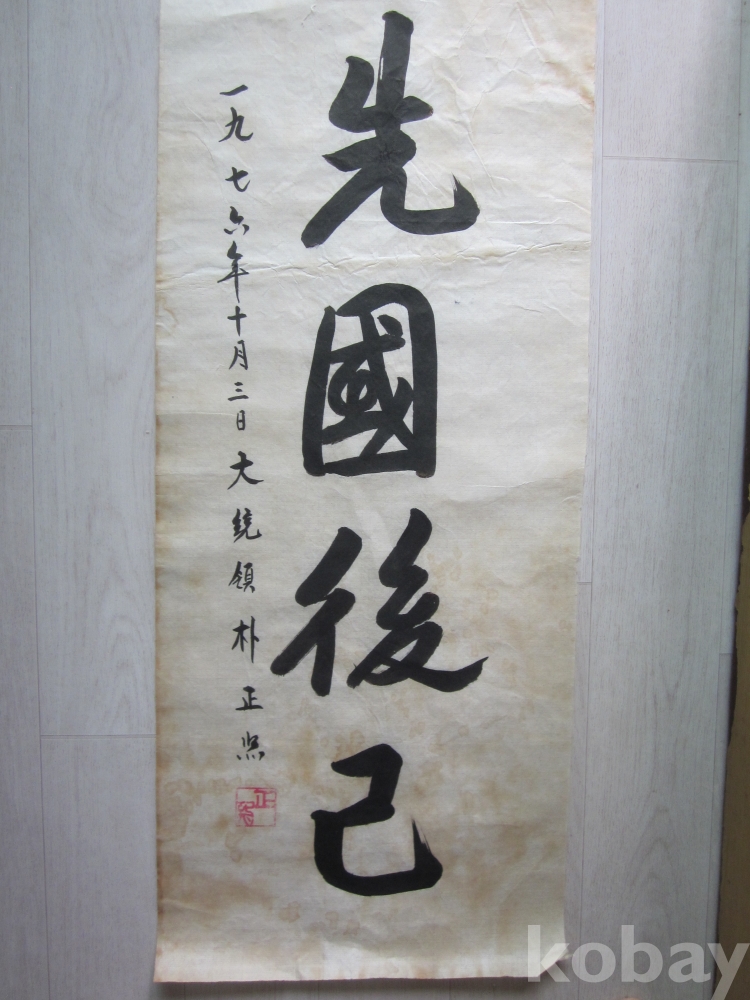 先國後己
一九七六年十月三日 大統領 朴正熙
kobay